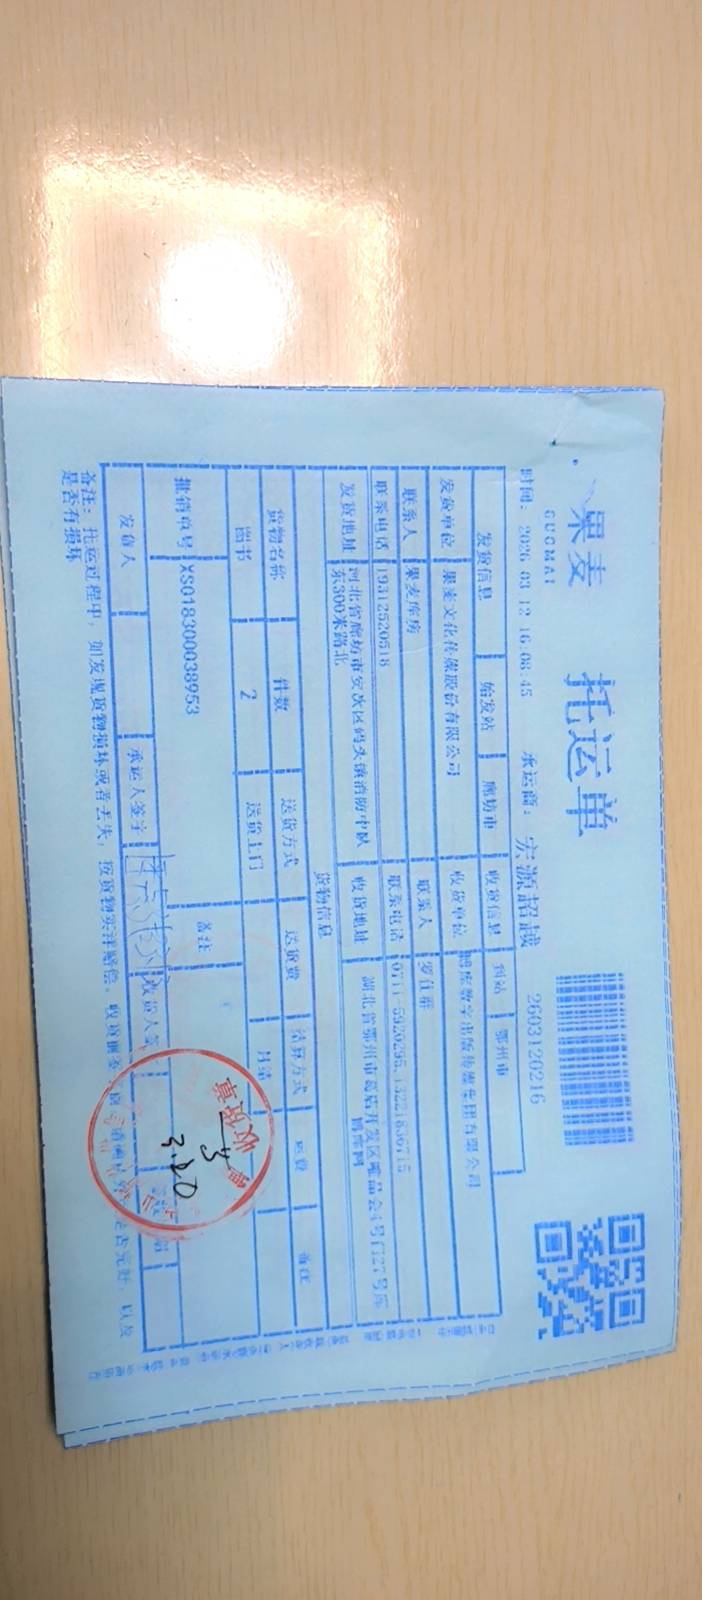 果麦 托运单
GUOMAI
2603120216
时间： 2026-03-12 16:08:45 承运商： 宏源超越
发货信息 始发站 廊坊市 收货信息 到站 鄂州市
发货单位 果麦文化传媒股份有限公司 收货单位 博库数字出版传媒集团有限公司
联系人 果麦库房 联系人
联系电话 19312520518 联系电话 0711-5920295,13221836715
发货地址 河北省廊坊市安次区码头镇消防中队东300米路北 收货地址 湖北省鄂州市葛店开发区唯品会4号门27号库博库网
货物信息
货物名称 件数 送货方式 送货费 结算方式 运费 备注
图书 2 送货上门 月结
报销单号 XS018300038953 备注
发货人 承运人签字 收货人签
备注：托运过程中，如发现货物损坏或者丢失，按货物实洋赔偿。
是否有损坏
收货章
3.20